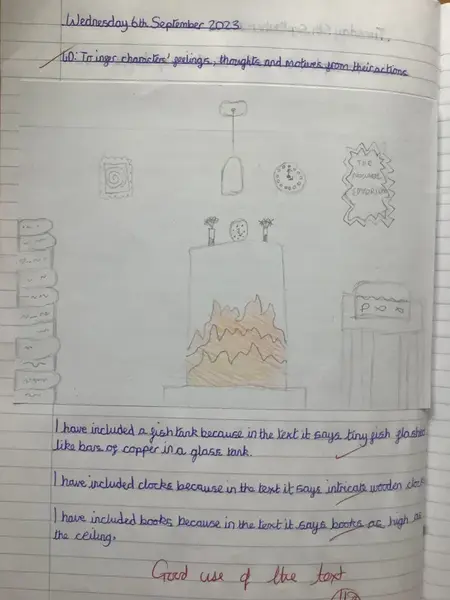 Wednesday 6th September 2023
LO: To infer characters' feelings, thoughts and motives from their actions
THE
I have included a fish tank because in the text it says tiny fish flashed
like bars of copper in a glass tank.
I have included clocks because in the text it says intricate wooden clock
I have included books because in the text it says books as high as
the ceiling.
Good use of the text